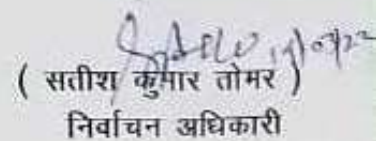 ( सतीश कुमार तोमर )
निर्वाचन अधिकारी